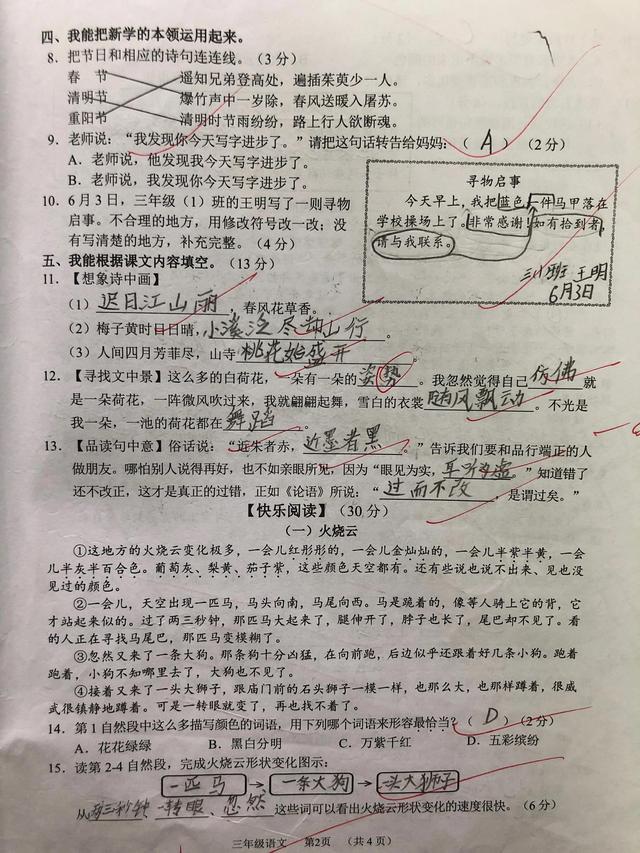 四、我能把新学的本领运用起来。
8. 把节日和相应的诗句连连线。(3 分)
春 节 遥知兄弟登高处，遍插茱萸少一人。
清明节 爆竹声中一岁除，春风送暖入屠苏。
重阳节 清明时节雨纷纷，路上行人欲断魂。
9. 老师说：“我发现你今天写字进步了。”请把这句话转告给妈妈：( A ) (2 分)
A．老师说，他发现我今天写字进步了。
B．老师说，我发现你今天写字进步了。
10. 6 月 3 日，三年级（1）班的王明写了一则寻物
启事。不合理的地方，用修改符号改一改；没
有写清楚的地方，补充完整。(4 分)
寻物启事
今天早上，我把蓝色一件马甲落在
学校操场上了。非常感谢！如有拾到者，
请与我联系。
三(1)班 王明
6月3日
五、我能根据课文内容填空。(13 分)
11. 【想象诗中画】
（1）迟日江山丽，春风花草香。
（2）梅子黄时日日晴，小溪泛尽却山行
（3）人间四月芳菲尽，山寺桃花始盛开
12. 【寻找文中景】这么多的白荷花，一朵有一朵的姿势。我忽然觉得自己仿佛就
是一朵荷花，一阵微风吹过来，我就翩翩起舞，雪白的衣裳随风飘动。不光是
我一朵，一池的荷花都在舞蹈。
13. 【品读句中意】俗话说：“近朱者赤，近墨者黑。”告诉我们要和品行端正的人
做朋友。哪怕别人说得再好，也不如亲眼所见，因为“眼见为实，耳听为虚。”知道错了
还不改正，这才是真正的过错，正如《论语》所说：“过而不改，是谓过矣。”
【快乐阅读】(30 分)
（一）火烧云
①这地方的火烧云变化极多，一会儿红彤彤的，一会儿金灿灿的，一会儿半紫半黄，一会
儿半灰半百合色。葡萄灰、梨黄、茄子紫，这些颜色天空都有。还有些说也说不出来、见也没
见过的颜色。
②一会儿，天空出现一匹马，马头向南，马尾向西。马是跪着的，像等人骑上它的背，它
才站起来似的。过了两三秒钟，那匹马大起来了，腿伸开了，脖子也长了，尾巴却不见了。看
的人正在寻找马尾巴，那匹马变模糊了。
③忽然又来了一条大狗。那条狗十分凶猛，在向前跑，后边似乎还跟着好几条小狗。跑着
跑着，小狗不知哪里去了，大狗也不见了。
④接着又来了一头大狮子，跟庙门前的石头狮子一模一样，也那么大，也那样蹲着，很威
武很镇静地蹲着。可是一转眼就变了，再也找不着了。
14. 第 1 自然段中这么多描写颜色的词语，用下列哪个词语来形容最恰当？( D ) (2分)
A．花花绿绿 B．黑白分明 C．万紫千红 D．五彩缤纷
15. 读第 2-4 自然段，完成火烧云形状变化图示：
一匹马 → 一条大狗 → 一头大狮子
从两三秒钟 一转眼、忽然 这些词可以看出火烧云形状变化的速度很快。(6 分)
三年级语文 第2页 （共 4 页）